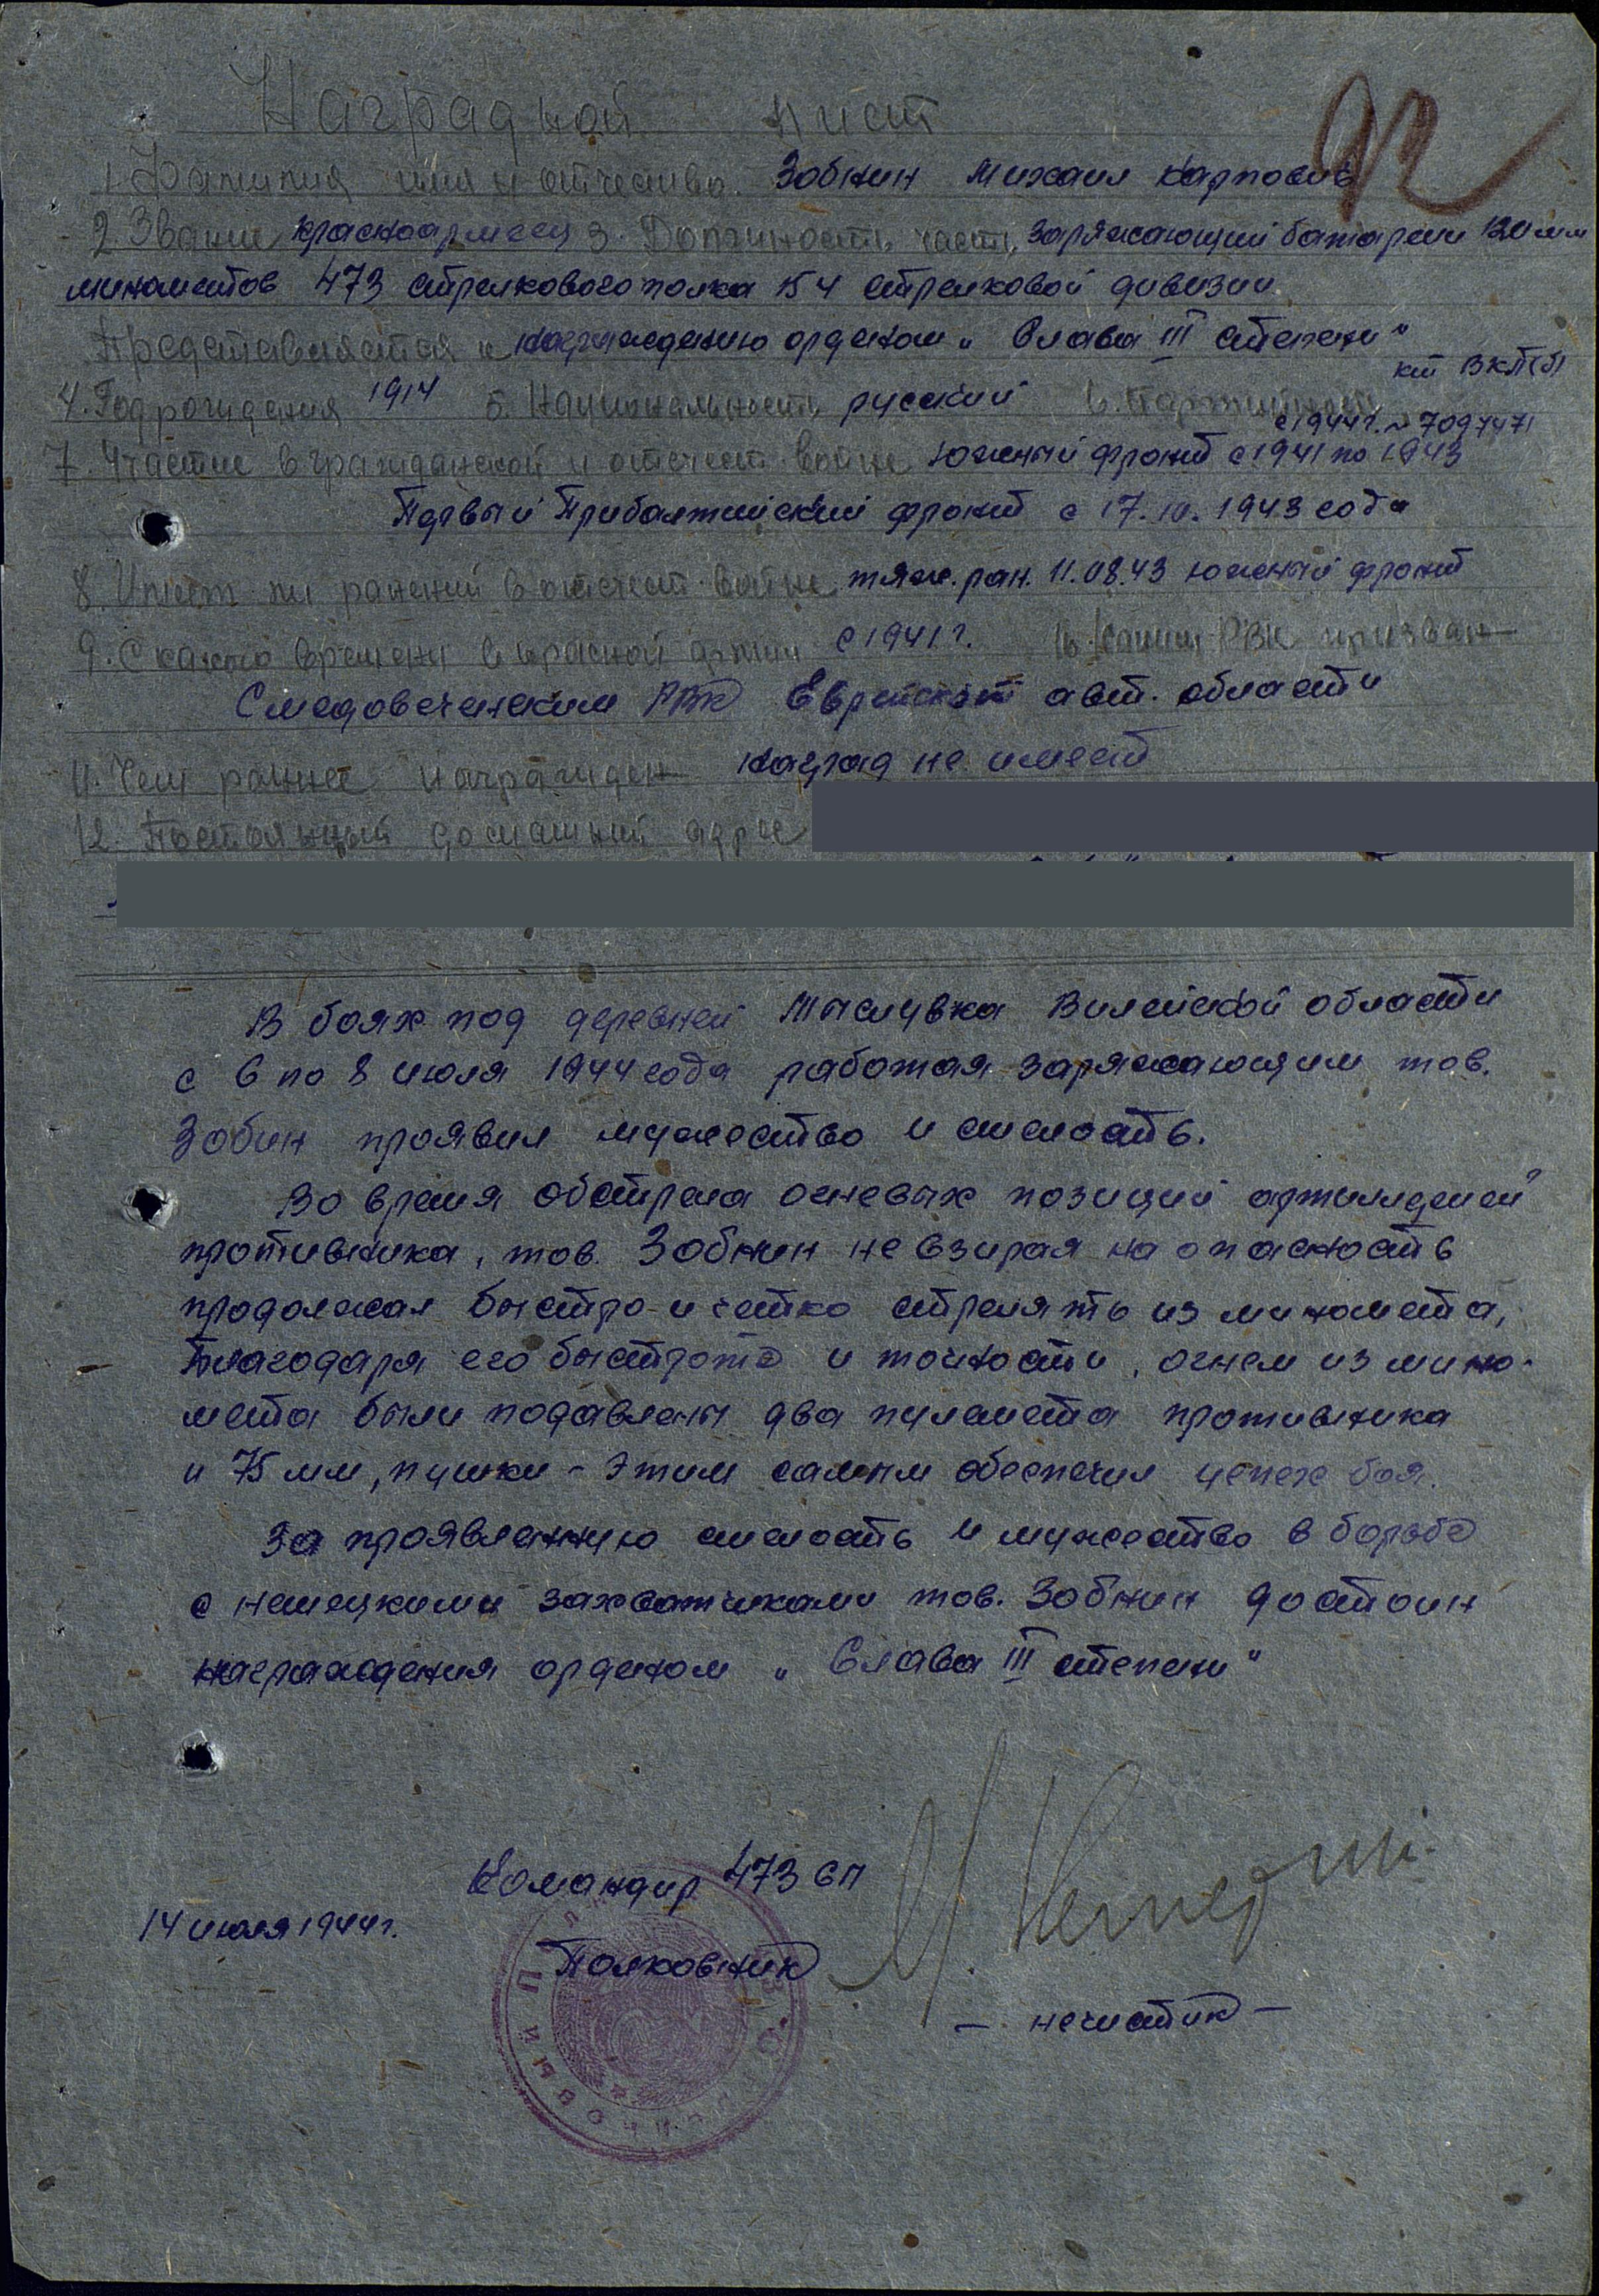 Наградной лист
92
1. Фамилия имя и отчество. Зобнин Михаил Карпович
2. Звание красноармеец 3. Должность часть, заряжающий батареи 120 мм
минометов 473 стрелкового полка 154 стрелковой дивизии.
Представляется к награждению орденом „Слава III степени"
кт ВКП(б)
4. Год рождения 1914 5. Национальность русский 6. Партийность
с 1944 г. №7097471
7. Участие в гражданской и отечест. войне Южный фронт с 1941 по 1943
Первый Прибалтийский фронт с 17.10.1943 года
8. Имеет ли ранений в отечест. войне тяж. ран. 11.08.43 южный фронт
9. С какого времени в красной армии с 1941 г. 10. Каким РВК призван
РВК Еврейской авт. области
11. Чем раннее награжден наград не имеет
12. Постоянный домашний адрес
В боях под деревней Мыслувка Вилейской области
с 6 по 8 июля 1944 года работая заряжающим тов.
Зобин проявил мужество и смелость.
Во время обстрела огневых позиций артиллерией
противника, тов. Зобнин не взирая на опасность
продолжал быстро и четко стрелять из миномета,
благодаря его быстроте и точности, огнем из мино-
мета были подавлены два пулемета противника
и 75 мм, пушки - этим самым обеспечил успех боя.
За проявленную смелость и мужество в борьбе
с немецкими захватчиками тов. Зобнин достоин
награждения орденом „Слава III степени"
Командир 473 СП
14 июля 1944 г.
Полковник
- нечистик -